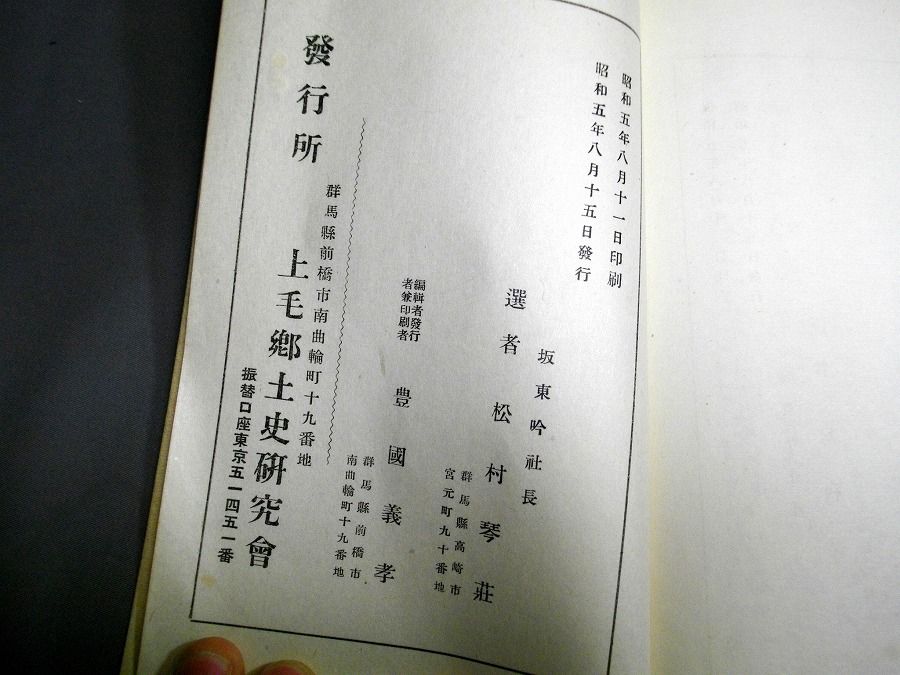 昭和五年八月十一日印刷
昭和五年八月十五日發行
坂東吟社長
選者 松村琴莊
群馬縣高崎市
宮元町九十番地
編輯者發行
者兼印刷者
豊國義孝
群馬縣前橋市
南曲輪町十九番地
群馬縣前橋市南曲輪町十九番地
發行所 上毛鄕土史硏究會
振替口座東京五一四五一番